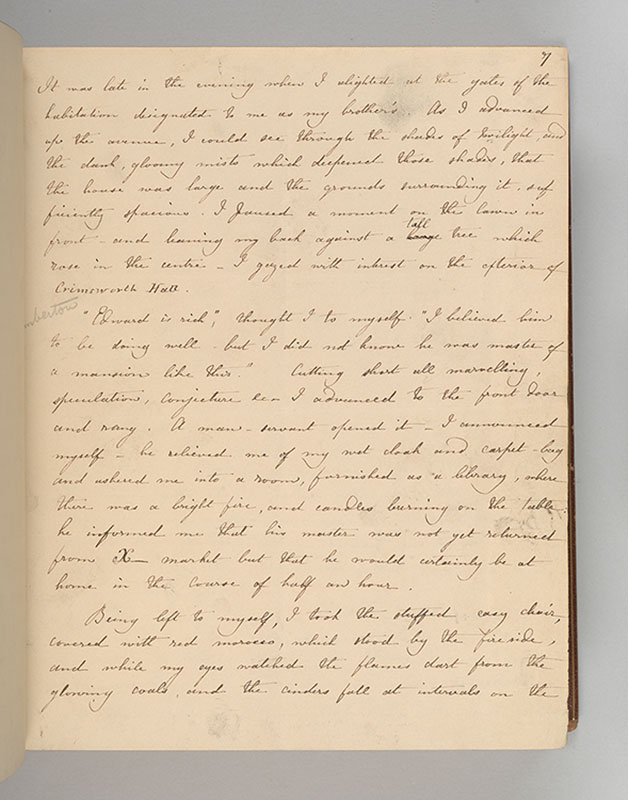 7
It was late in the evening when I alighted at the gates of the
habitation designated to me as my brother's. As I advanced
up the avenue, I could see through the shades of twilight, and
the dank, gloomy mists which deepened those shades, that
the house was large and the grounds surrounding it, suf
ficiently spacious. I paused a moment on the lawn in
front – and leaning my back against a tall tree which
rose in the centre – I gazed with interest on the exterior of
Crimsworth Hall.
mberton
"Edward is rich", thought I to myself. "I believed him
to be doing well – but I did not know he was master of
a mansion like this." Cutting short all marvelling,
speculation, conjecture &c – I advanced to the front door
and rang. A man-servant opened it – I announced
myself – he relieved me of my wet cloak and carpet-bag
and ushered me into a room, furnished as a library, where
there was a bright fire, and candles burning on the table;
he informed me that his master was not yet returned
from X— market but that he would certainly be at
home in the course of half an hour.
Being left to myself, I took the stuffed easy chair,
covered with red morocco, which stood by the fireside,
and while my eyes watched the flames dart from the
glowing coals, and the cinders fall at intervals on the